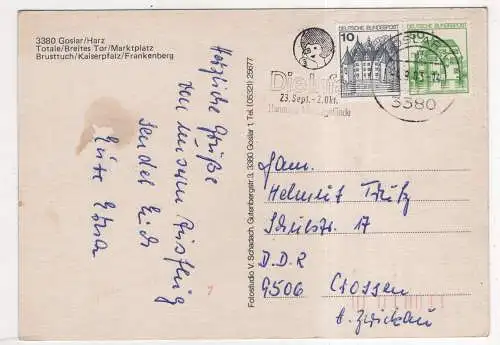 3380 Goslar/Harz
Totale/Breites Tor/Marktplatz
Brusttuch/Kaiserpfalz/Frankenberg
Herzliche Grüße
von unserem Ausflug
sendet Euch
Eure Erna
Fotostudio V. Schadach, Gutenbergstr. 3, 3380 Goslar 1, Tel. (05321) 25677
10
DEUTSCHE BUNDESPOST
DEUTSCHE BUNDESPOST
Die
23. Sept. - 2. Okt.
3380
Fam.
Helmut
Schulstr. 17
D.D.R
9506 Crossen
b. Zwickau